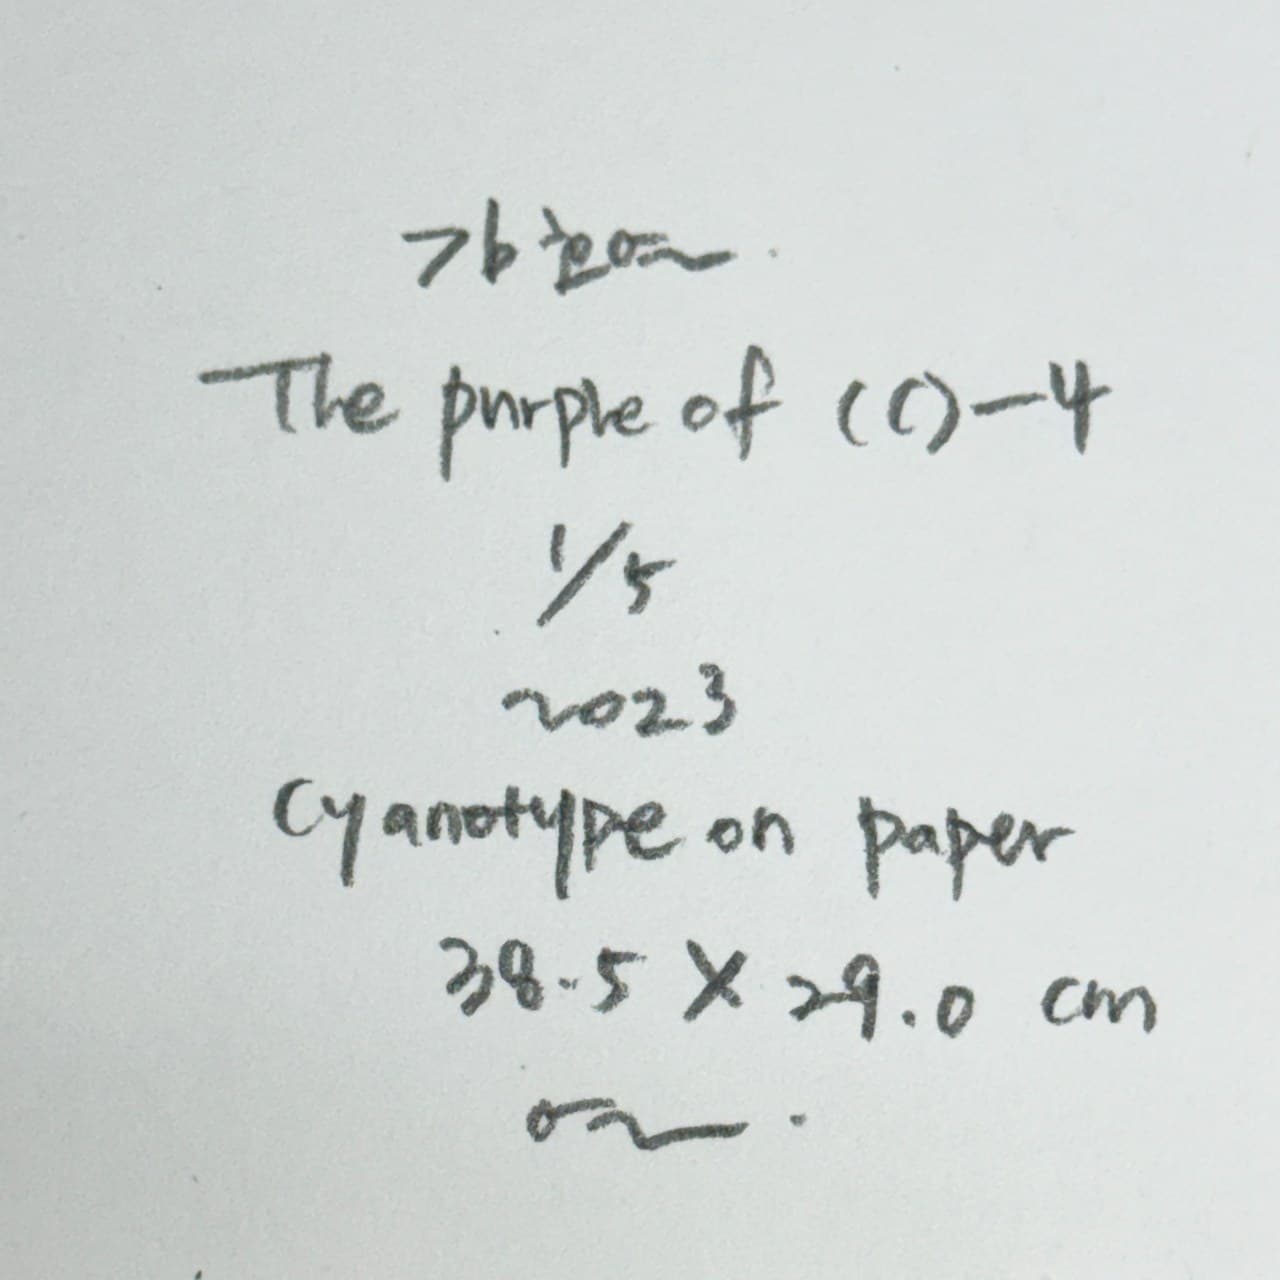 The purple of (C)-4
1/5
2023
Cyanotype on paper
38.5 X 29.0 cm